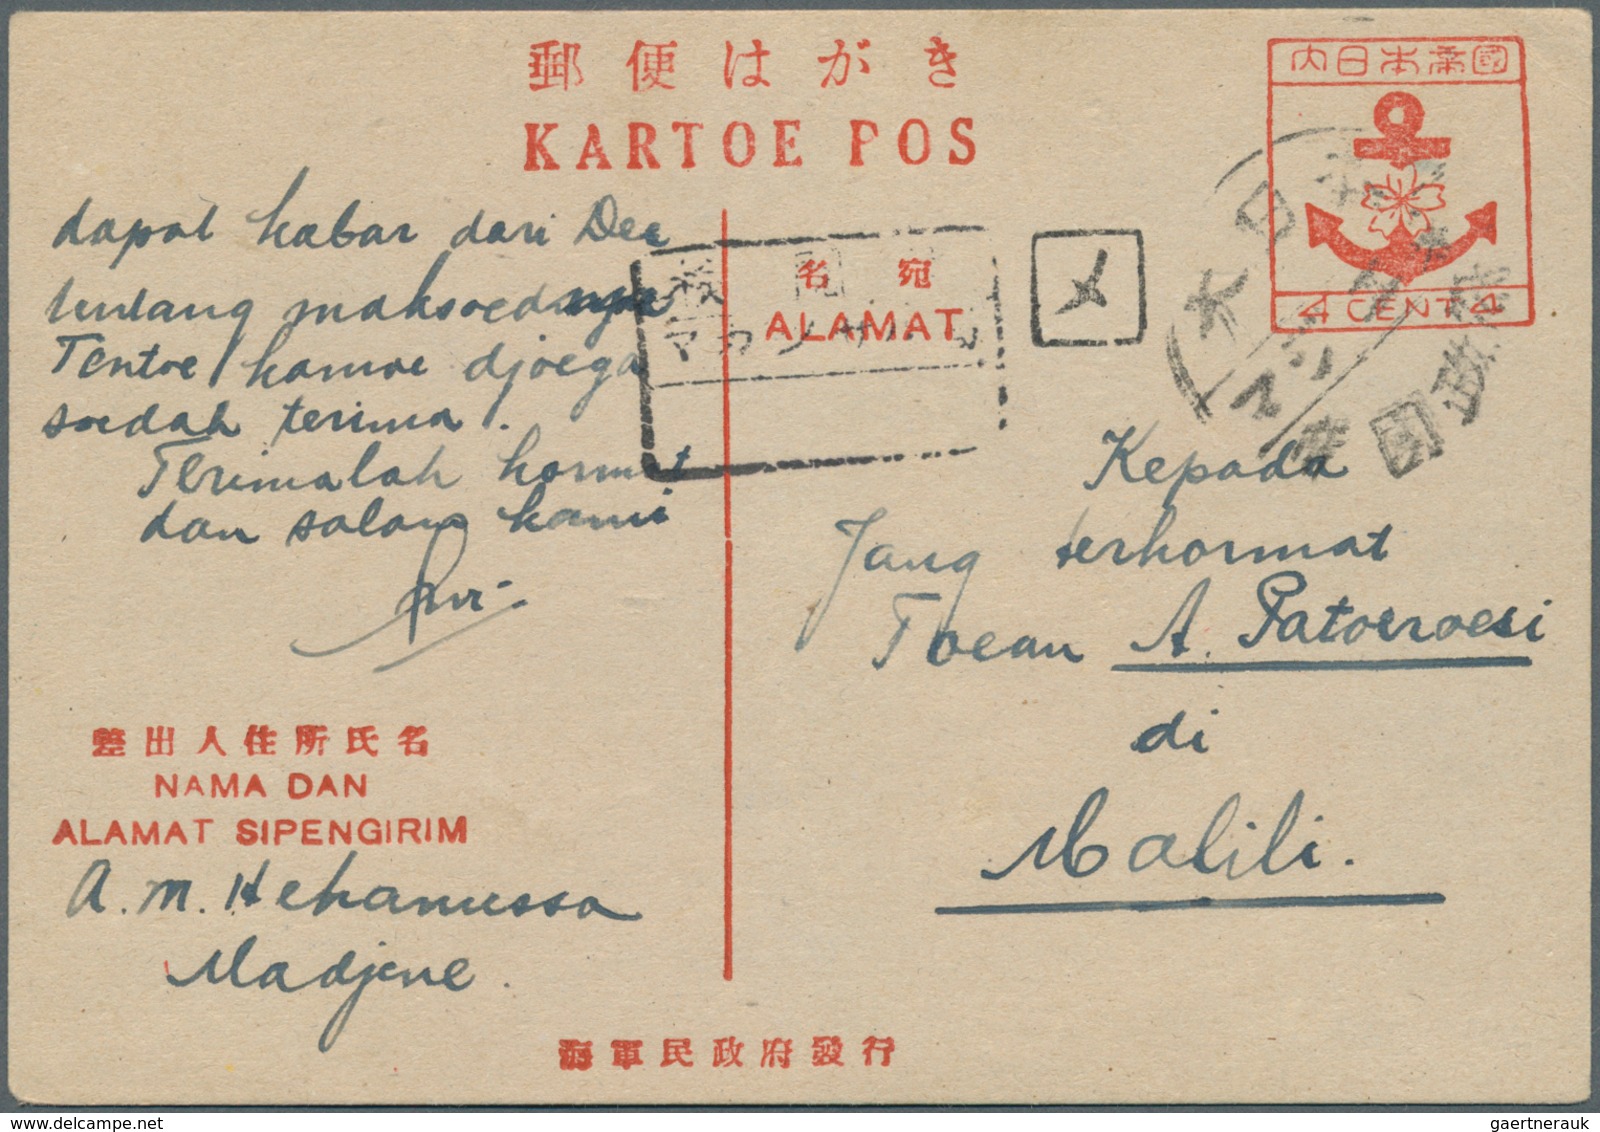 郵便はがき
KARTOE POS
内日本帝國
4 CENT 4
dapat kabar dari Dee
tentang maksoednya
Tentoe kamoe djoega
soedah terima.
Terimalah hormat
dan salam kami
名宛
ALAMAT
メ
大日本
Kepada
Jang terhormat
Toean A. Patoeroesi
di
Malili.
差出人住所氏名
NAMA DAN
ALAMAT SIPENGIRIM
A. M. Hehanussa
Madjene.
海軍民政府發行
gaertnerauk